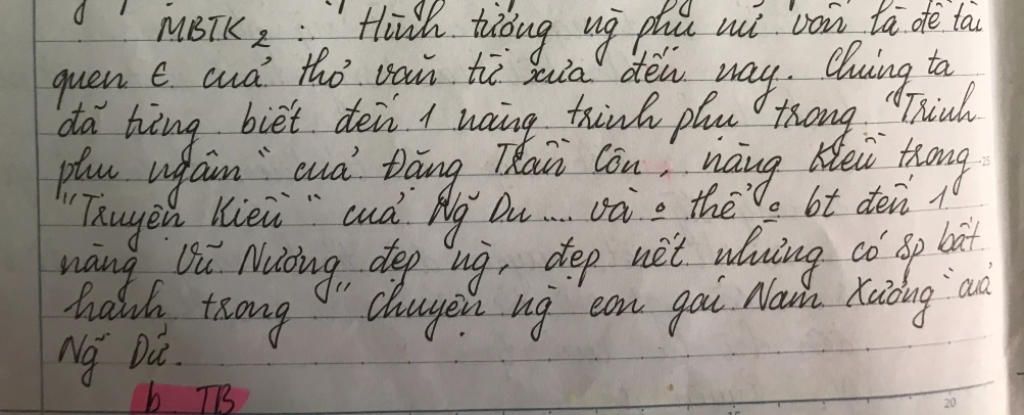 MBTK2 : Hình tượng ng phụ nữ vốn là đề tài
quen € của thơ văn từ xưa đến nay. Chúng ta
đã từng biết đến 1 nàng trinh phụ trong "Trinh
phụ ngâm" của Đặng Trần Côn, nàng Kiều trong
"Truyện Kiều" của Ng~ Du .... và o thể o bt đến 1
nàng Vũ Nương đẹp ng, đẹp nết nhưng có sp bất
hạnh trong "Chuyện ng con gái Nam Xương" của
Ng~ Dữ.
b TB